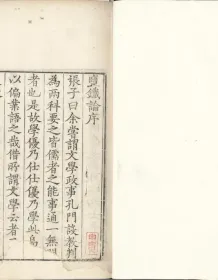 鹽鐵論序
張子曰余嘗謂文學政事孔門設教判
為兩科要之皆儒者之能事通一無間
者也是故學優乃仕仕優乃學此烏
以偏業語之哉借所謂文學云者一